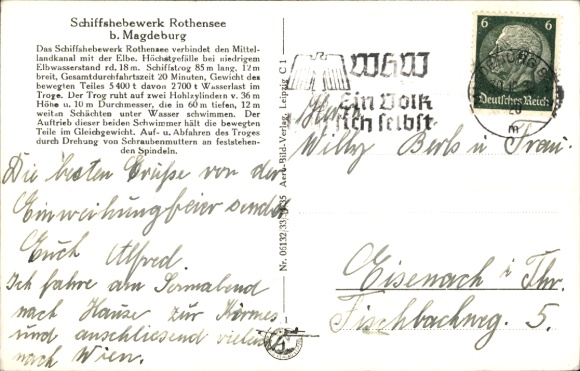 Schiffshebewerk Rothensee
b. Magdeburg
Das Schiffshebewerk Rothensee verbindet den Mittel-
landkanal mit der Elbe. Höchstgefälle bei niedrigem
Elbwasserstand rd. 18 m. Schiffstrog 85 m lang, 12 m
breit, Gesamtdurchfahrtszeit 20 Minuten, Gewicht des
bewegten Teiles 5400 t davon 2700 t Wasserlast im
Troge. Der Trog ruht auf zwei Hohlzylindern v. 36 m
Höhe u. 10 m Durchmesser, die in 60 m tiefen, 12 m
weiten Schächten unter Wasser schwimmen. Der
Auftrieb dieser beiden Schwimmer hält die bewegten
Teile im Gleichgewicht. Auf- u. Abfahren des Troges
durch Drehung von Schraubenmuttern an feststehen-
den Spindeln.
Die besten Grüße von der
Einweihungsfeier sendet
Euch Alfred.
Ich fahre am Sonnabend
nach Hause zur Kirmes
und anschliessend
nach Wien.
Aero-Bild-Verlag, Leipzig C 1
WHW
Ein Volk
hilft sich selbst
6
6
Deutsches Reich
Willy
u. Frau.
Eisenach i. Thr.
Fischbachweg. 5.